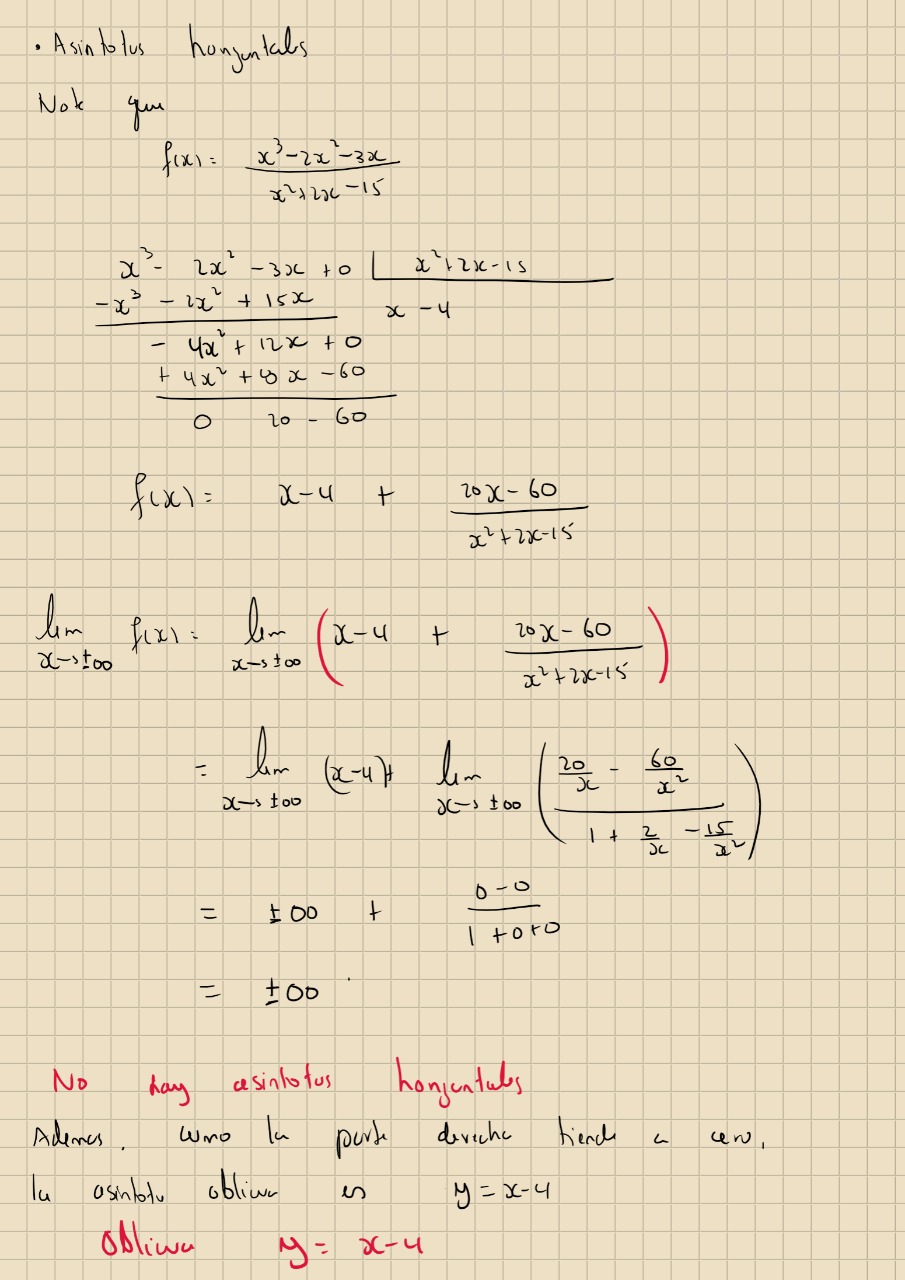 • Asintotas horizontales
Note que
f(x) = \frac{x^3-2x^2-3x}{x^2+2x-15}
x^3 - 2x^2 - 3x + 0 | x^2+2x-15
-x^3 - 2x^2 + 15x x - 4
- 4x^2 + 12x + 0
+ 4x^2 + 8x - 60
0 20 - 60
f(x) = x-4 + \frac{20x-60}{x^2+2x-15}
lim_{x→±∞} f(x) = lim_{x→±∞} ( x-4 + \frac{20x-60}{x^2+2x-15} )
= lim_{x→±∞} (x-4) + lim_{x→±∞} ( \frac{\frac{20}{x} - \frac{60}{x^2}}{1 + \frac{2}{x} - \frac{15}{x^2}} )
= ±∞ + \frac{0-0}{1+0+0}
= ±∞
No hay asintotas horizontales
Ademas, como la parte derecha tiende a cero,
la asintota oblicua es y = x-4
Oblicua y = x-4